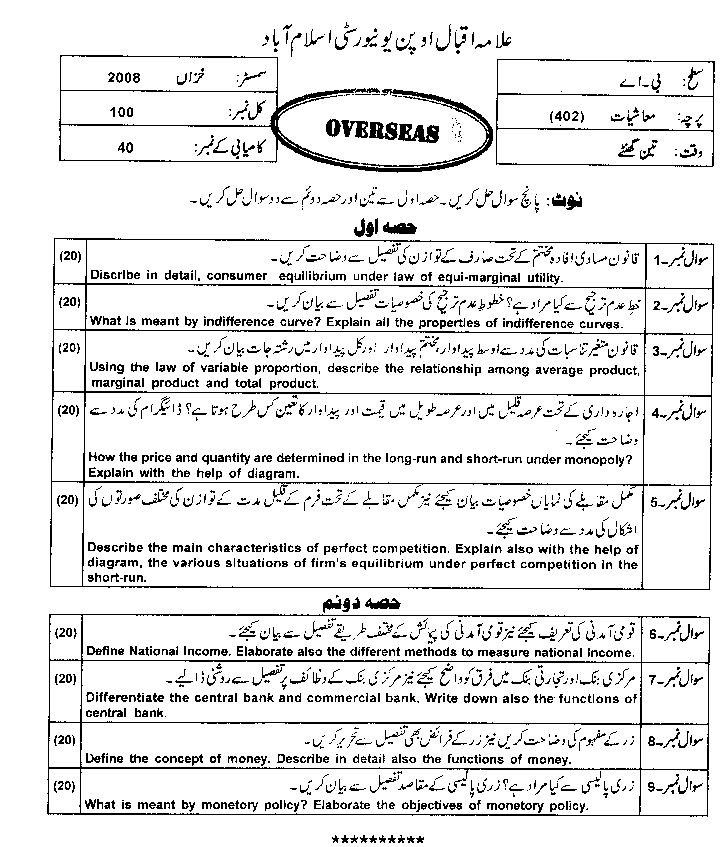 علامہ اقبال اوپن یونیورسٹی اسلام آباد
سطح: بی۔اے
پرچہ: معاشیات (402)
وقت: تین گھنٹے
OVERSEAS
سمسٹر: خزاں 2008
کل نمبر: 100
کامیابی کے نمبر: 40
نوٹ: پانچ سوال حل کریں۔ حصہ اول سے تین اور حصہ دوئم سے دو سوال حل کریں۔
حصہ اول
سوال نمبر۔1 قانون مساوی افادہ مختتم کے تحت صارف کے توازن کی تفصیل سے وضاحت کریں۔ (20)
Discribe in detail, consumer equilibrium under law of equi-marginal utility.
سوال نمبر۔2 خط عدم ترجیح سے کیا مراد ہے؟ خطوط عدم ترجیح کی خصوصیات تفصیل سے بیان کریں۔ (20)
What is meant by indifference curve? Explain all the properties of indifference curves.
سوال نمبر۔3 قانون متغیر تناسبات کی مدد سے اوسط پیداوار، مختتم پیداوار اور کل پیداوار میں رشتہ جات بیان کریں۔ (20)
Using the law of variable proportion, describe the relationship among average product,
marginal product and total product.
سوال نمبر۔4 اجارہ داری کے تحت عرصہ قلیل میں اور عرصہ طویل میں قیمت اور پیداوار کا تعین کس طرح ہوتا ہے؟ ڈائیگرام کی مدد سے (20)
وضاحت کیجئے۔
How the price and quantity are determined in the long-run and short-run under monopoly?
Explain with the help of diagram.
سوال نمبر۔5 مکمل مقابلے کی نمایاں خصوصیات بیان کیجئے نیز مکمل مقابلے کے تحت فرم کے قلیل مدت کے توازن کی مختلف صورتوں کی (20)
اشکال کی مدد سے وضاحت کیجئے۔
Describe the main characteristics of perfect competition. Explain also with the help of
diagram, the various situations of firm's equilibrium under perfect competition in the
short-run.
حصہ دوئم
سوال نمبر۔6 قومی آمدنی کی تعریف کیجئے نیز قومی آمدنی کی پیمائش کے مختلف طریقے تفصیل سے بیان کیجئے۔ (20)
Define National Income. Elaborate also the different methods to measure national income.
سوال نمبر۔7 مرکزی بنک اور تجارتی بنک میں فرق کو واضح کیجئے نیز مرکزی بنک کے وظائف پر تفصیل سے روشنی ڈالیے۔ (20)
Differentiate the central bank and commercial bank. Write down also the functions of
central bank.
سوال نمبر۔8 زر کے مفہوم کی وضاحت کریں نیز زر کے فرائض بھی تفصیل سے تحریر کریں۔ (20)
Define the concept of money. Describe in detail also the functions of money.
سوال نمبر۔9 زری پالیسی سے کیا مراد ہے؟ زری پالیسی کے مقاصد تفصیل سے بیان کریں۔ (20)
What is meant by monetory policy? Elaborate the objectives of monetory policy.
**********